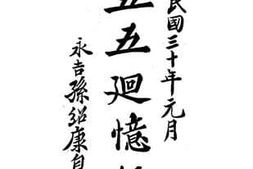 民國三十年元月
五五廻憶
永吉孫紹康自